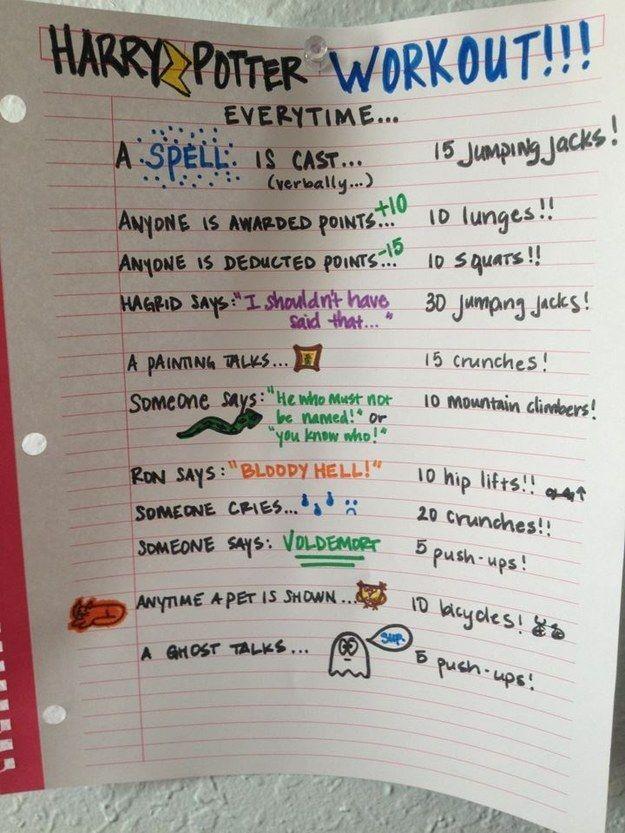 HARRY POTTER WORKOUT!!!
EVERYTIME...
A SPELL IS CAST... 15 jumping jacks!
(verbally...)
ANYONE IS AWARDED POINTS...+10 10 lunges!!
ANYONE IS DEDUCTED POINTS...-15 10 squats!!
HAGRID SAYS: "I shouldn't have 30 jumping jacks!
said that..."
A PAINTING TALKS... 15 crunches!
Someone says: "He who must not 10 mountain climbers!
be named!" or
"you know who!"
RON SAYS: "BLOODY HELL!" 10 hip lifts!!
SOMEONE CRIES... 20 crunches!!
SOMEONE SAYS: VOLDEMORT 5 push-ups!
ANYTIME A PET IS SHOWN... 10 bicycles!
A GHOST TALKS... sup. 5 push-ups!